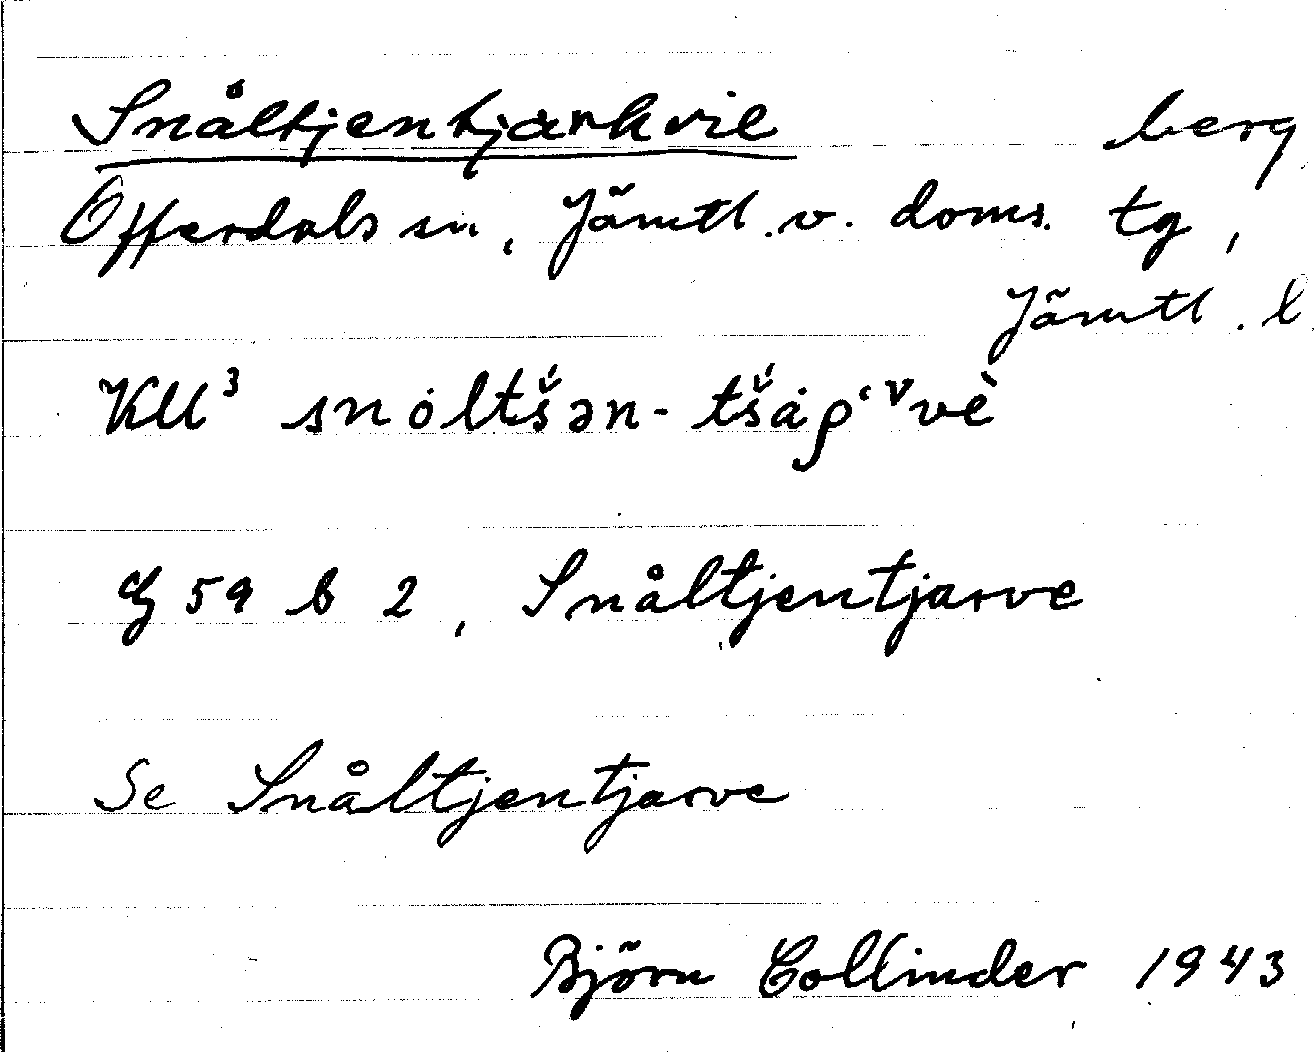 Snåltjentjarkvie berg
Offerdals sn, Jämtl. v. doms. tg,
Jämtl. l
KU³ snòltš́ən-tš́ȧp̔ᵛvè
G 59 b 2, Snåltjentjarve
Se Snåltjentjarve
Björn Collinder 1943